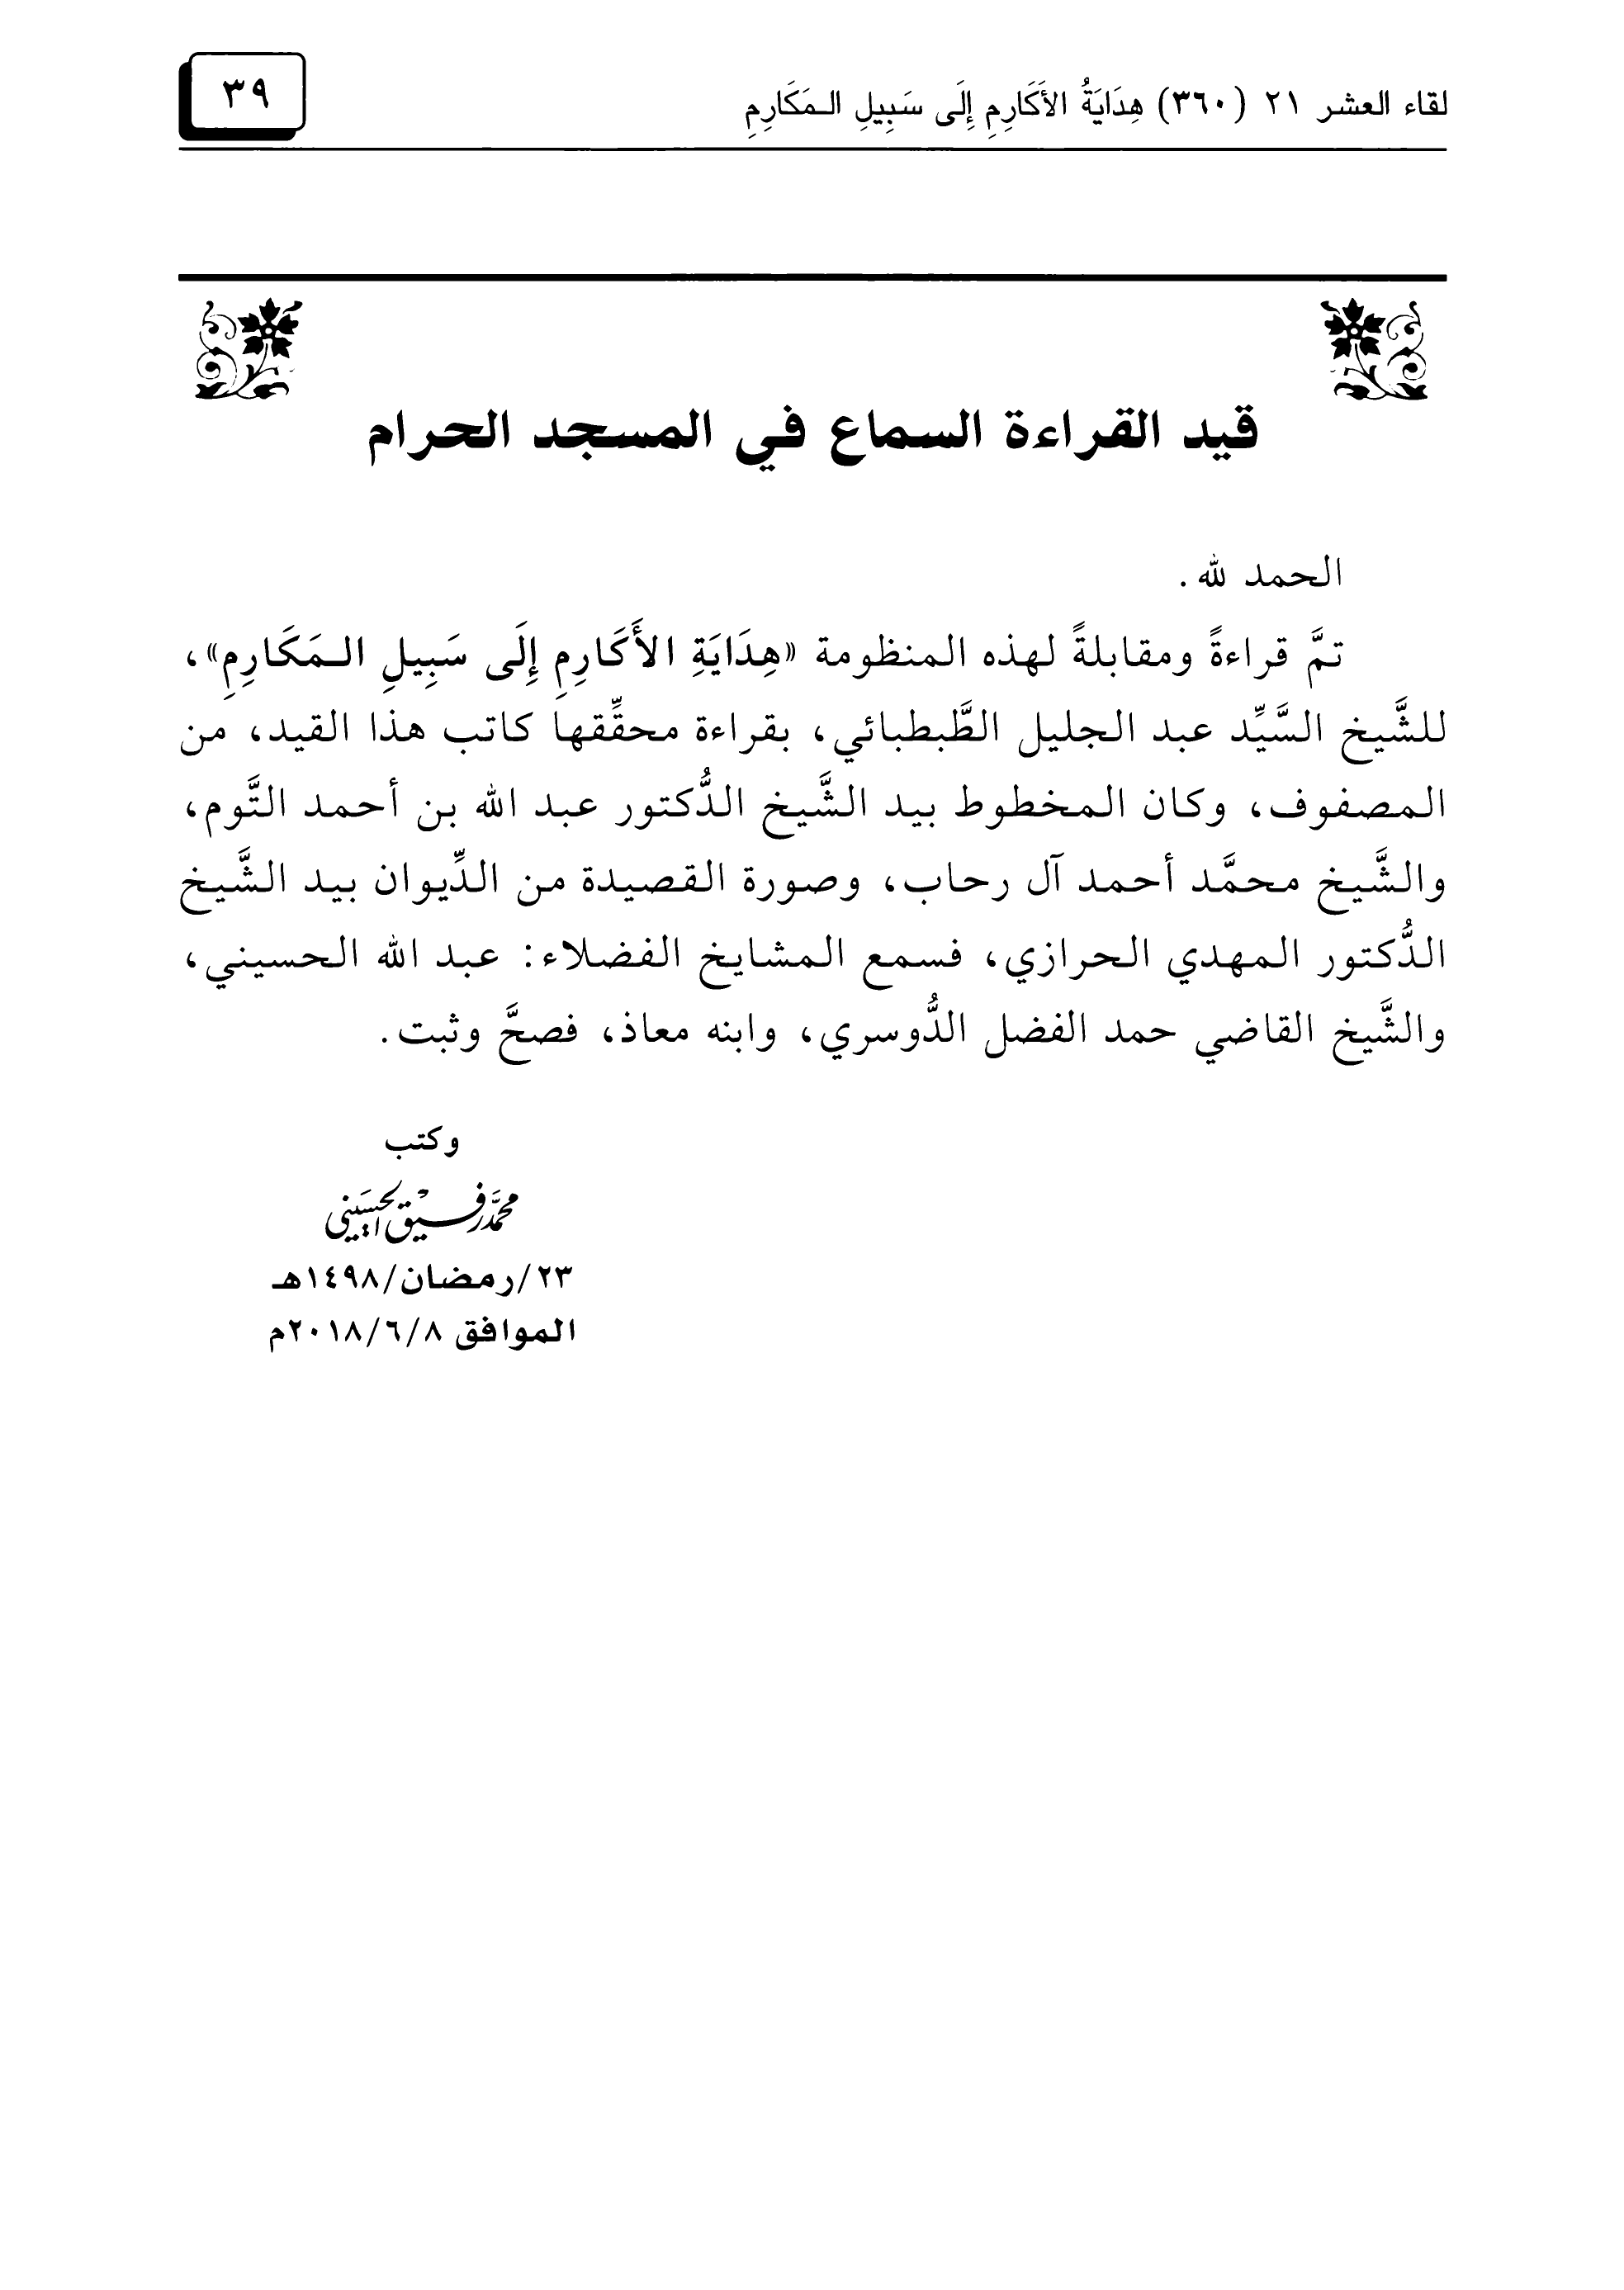 لقاء العشر ٢١ (٣٦٠) هِدَايَةُ الأَكَارِمِ إِلَى سَبِيلِ الـمَكَارِمِ
٣٩
قيد القراءة السماع في المسجد الحرام
الحمد لله.
تمَّ قراءةً ومقابلةً لهذه المنظومة «هِدَايَةِ الأَكَارِمِ إِلَى سَبِيلِ الـمَكَارِمِ»،
للشَّيخ السَّيِّد عبد الجليل الطَّبطبائي، بقراءة محقِّقها كاتب هذا القيد، من
المصفوف، وكان المخطوط بيد الشَّيخ الدُّكتور عبد الله بن أحمد التَّوم،
والشَّيخ محمَّد أحمد آل رحاب، وصورة القصيدة من الدِّيوان بيد الشَّيخ
الدُّكتور المهدي الحرازي، فسمع المشايخ الفضلاء: عبد الله الحسيني،
والشَّيخ القاضي حمد الفضل الدُّوسري، وابنه معاذ، فصحَّ وثبت.
وكتب
محمَّد رفيق الحسيني
٢٣/رمضان/١٤٩٨هـ
الموافق ٢٠١٨/٦/٨م